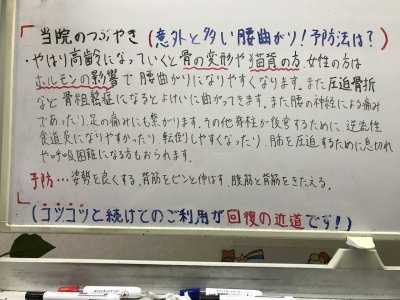 当院のつぶやき(意外と多い腰曲がり!予防法は?)
・やはり高齢になっていくと骨の変形や猫背の方、女性の方は
ホルモンの影響で腰曲がりになりやすくなります。また圧迫骨折
など骨粗鬆症になるとよけいに曲がってきます。また腰の神経による痛み
であったり、足の痛みにも繋がります。その他脊柱が後弯するために逆流性
食道炎になりやすかったり、転倒しやすくなったり、肺を圧迫するために息切れ
や呼吸困難になる方もおられます。
予防…姿勢を良くする、背筋をピンと伸ばす、腹筋と背筋をきたえる。
(コツコツと続けてのご利用が回復の近道です!)